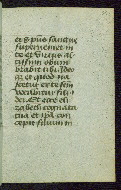 et ꝫ sp̄us sanctus
superueniet in
te et virtus al
tissimi obum
brabit tibi. Ide
oꝙ et quod na
scetur ex te san
vocabitur fili
dei. Et ecce eli
zabeth cognata
tua et ip̄a con
cepit filium in